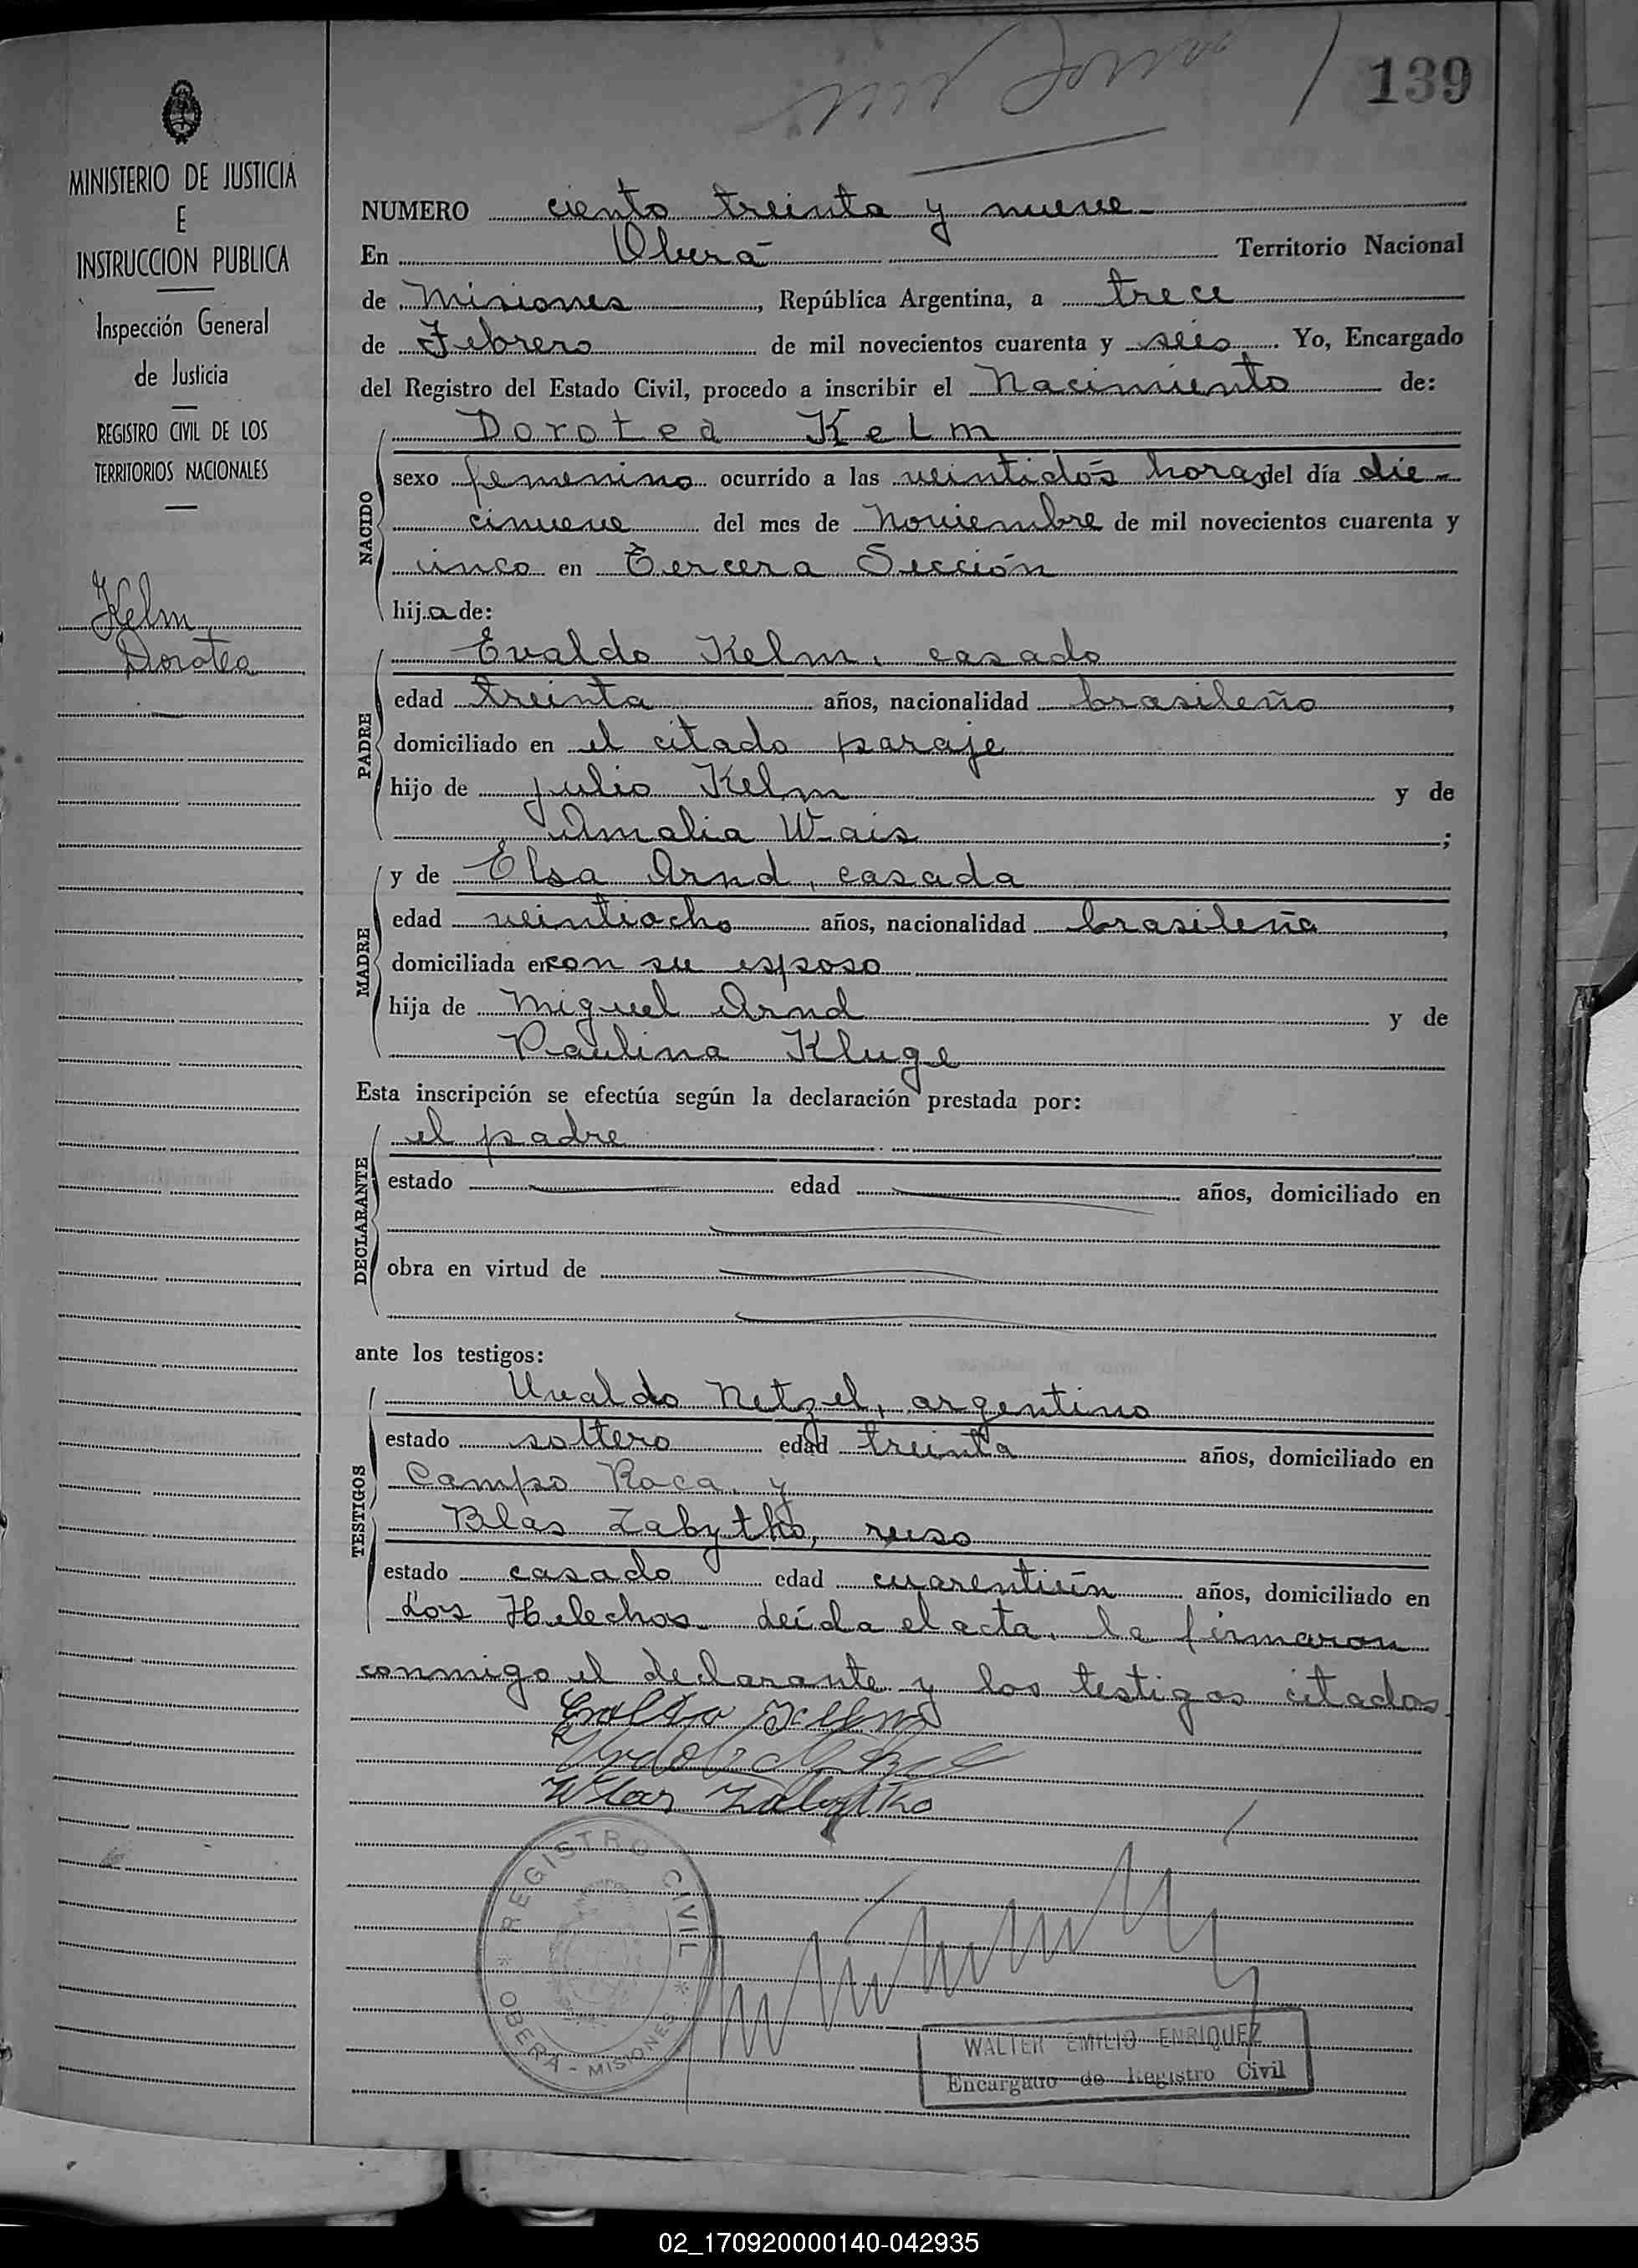 139
MINISTERIO DE JUSTICIA
E
INSTRUCCION PUBLICA
Inspección General
de Justicia
REGISTRO CIVIL DE LOS
TERRITORIOS NACIONALES
Kelm
Dorotea
NUMERO ciento treinta y nueve
En Oberá Territorio Nacional
de Misiones, República Argentina, a trece
de Febrero de mil novecientos cuarenta y seis. Yo, Encargado
del Registro del Estado Civil, procedo a inscribir el Nacimiento de:
NACIDO
Dorotea Kelm
sexo femenino ocurrido a las veintidós horas del día die-
cinueve del mes de Noviembre de mil novecientos cuarenta y
cinco en Tercera Sección
hija de:
PADRE
Evaldo Kelm, casado
edad treinta años, nacionalidad brasileño,
domiciliado en el citado paraje
hijo de Julio Kelm y de
Amalia Wais;
MADRE
y de Elsa Arnd, casada
edad veintiocho años, nacionalidad brasileña,
domiciliada en con su esposo
hija de Miguel Arnd y de
Paulina Kluge
Esta inscripción se efectúa según la declaración prestada por:
DECLARANTE
el padre
estado edad años, domiciliado en
obra en virtud de
ante los testigos:
TESTIGOS
Uvaldo Netzel, argentino
estado soltero edad treinta años, domiciliado en
Campo Roca, y
Blas Zabytko, ruso
estado casado edad cuarentiún años, domiciliado en
Los Helechos. Leída el acta, la firmaron
conmigo el declarante y los testigos citados.
Evaldo Kelm
Wlas Zabytko
REGISTRO CIVIL
OBERA - MISIONES
WALTER EMILIO ENRIQUEZ
Encargado de Registro Civil
02_170920000140-042935